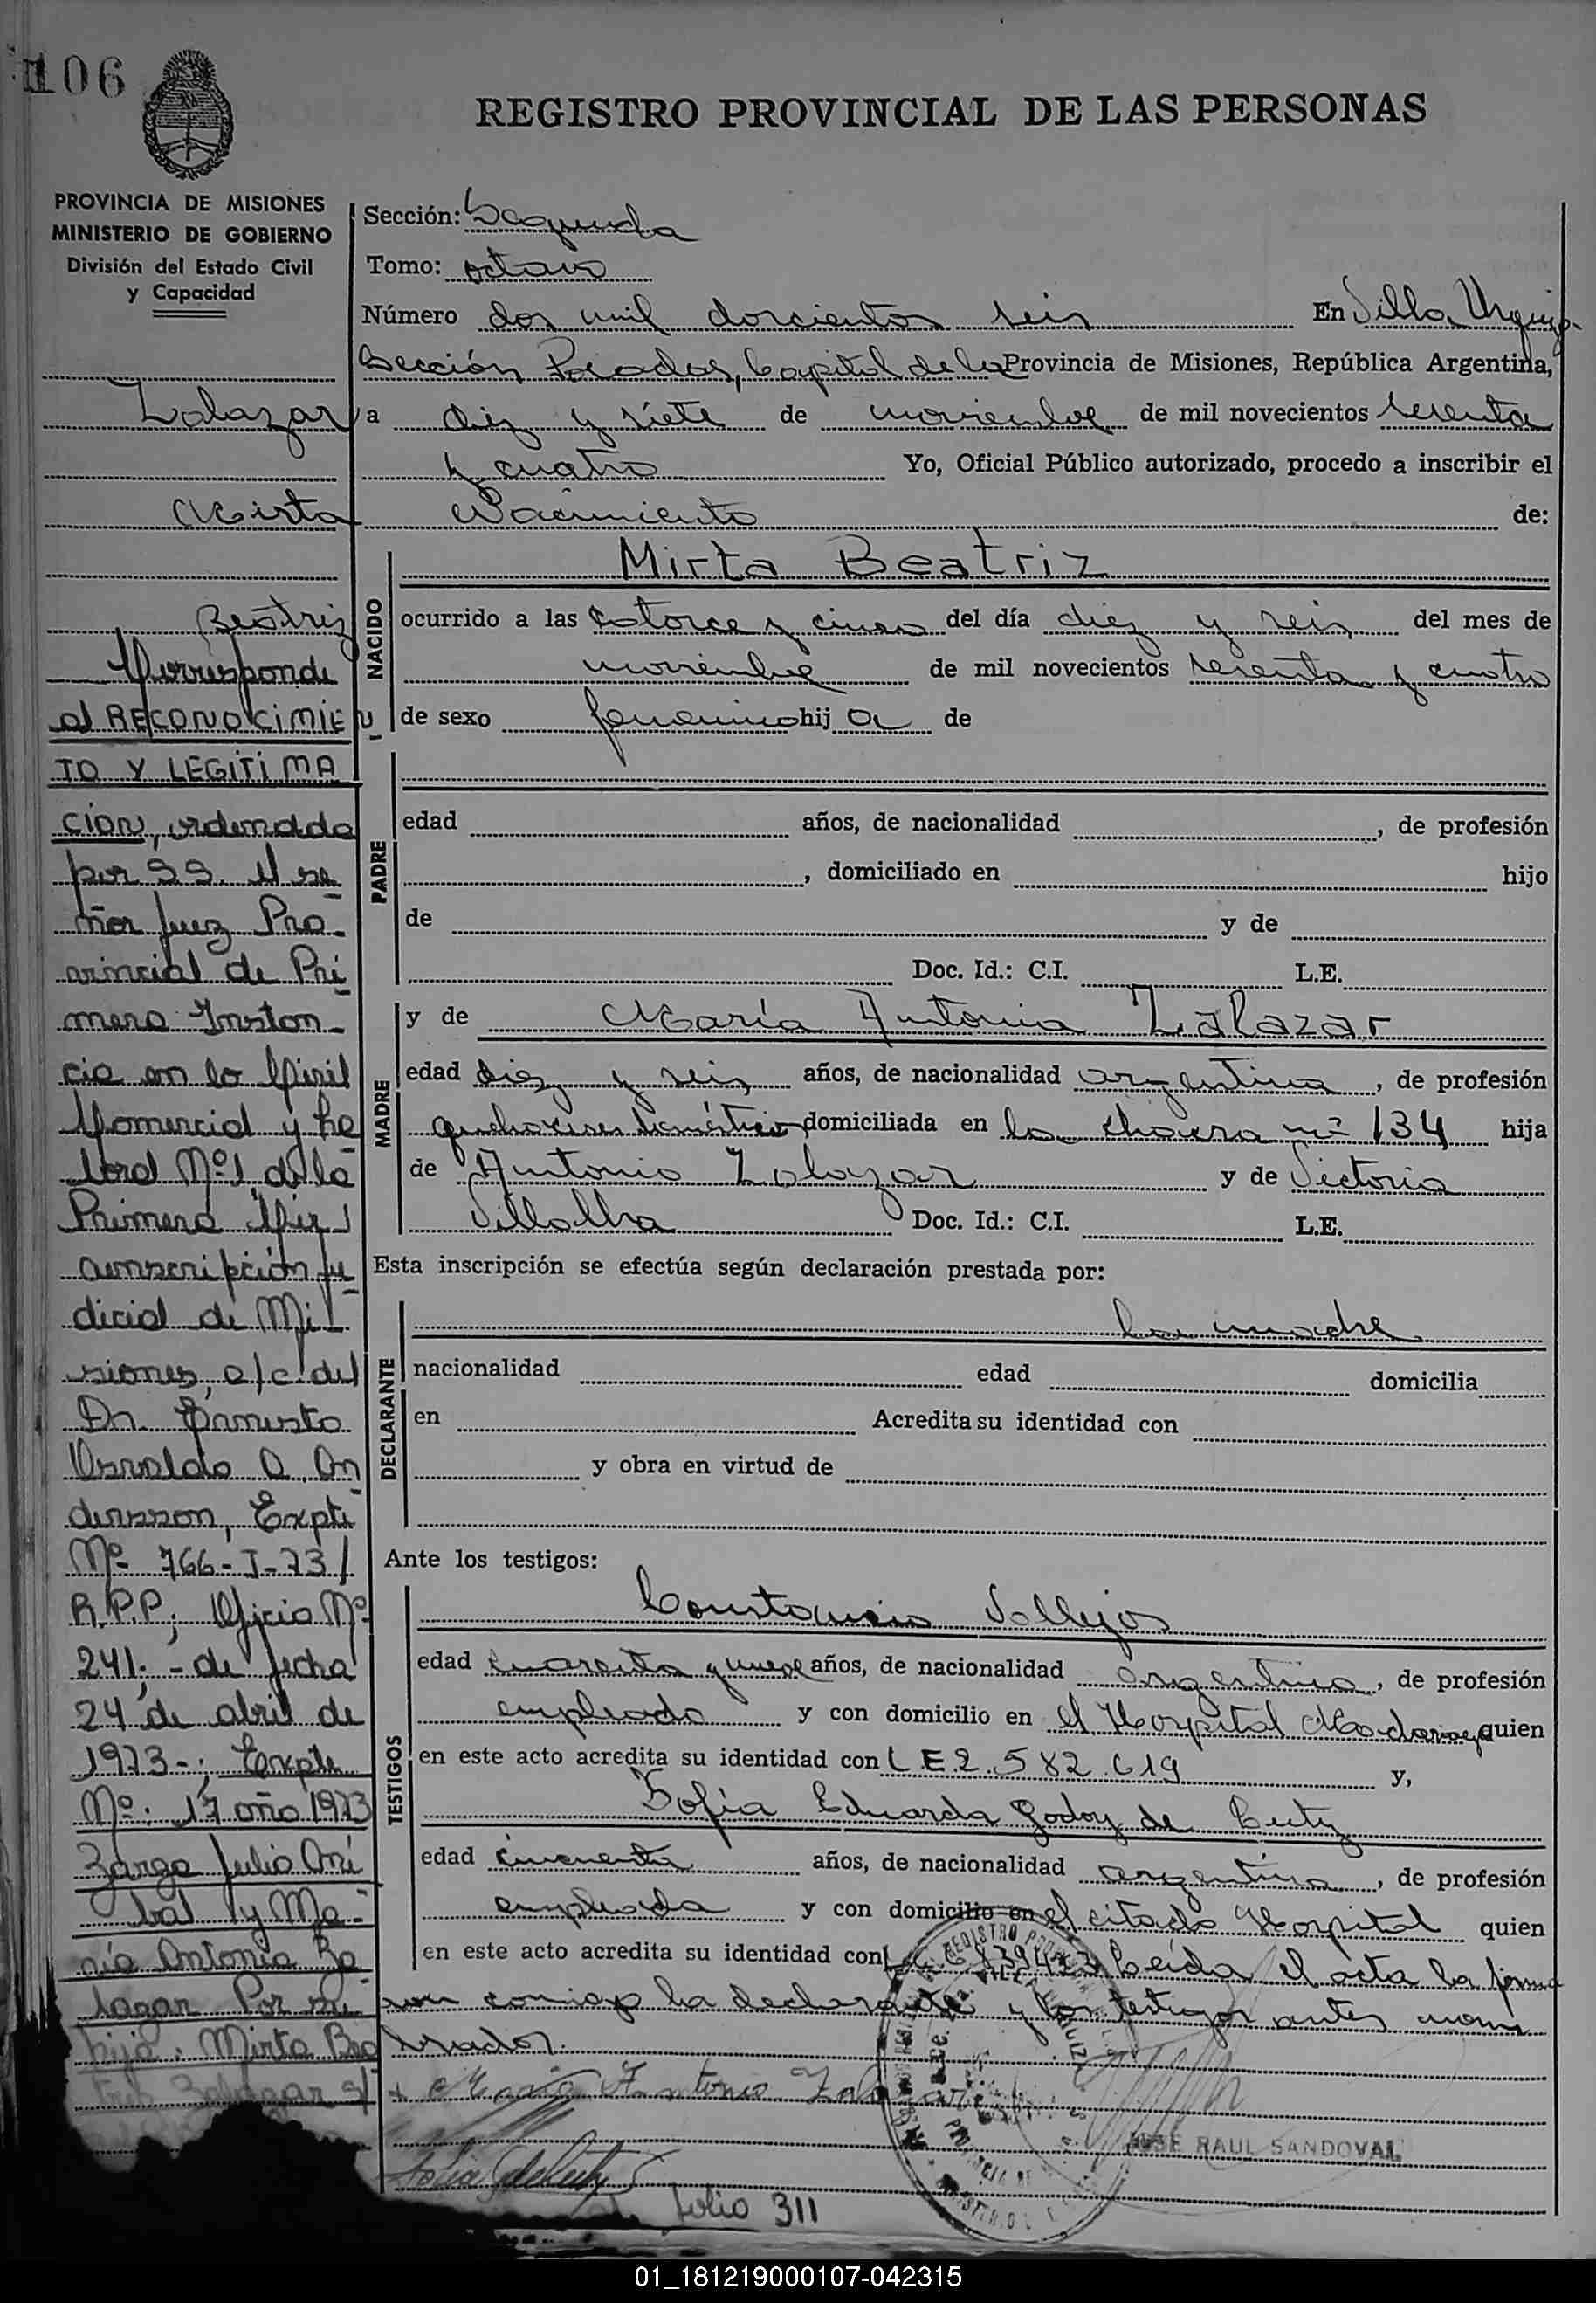 106
REGISTRO PROVINCIAL DE LAS PERSONAS
PROVINCIA DE MISIONES
MINISTERIO DE GOBIERNO
División del Estado Civil
y Capacidad
Zalazar
Mirta
Beatriz
Corresponde
al RECONOCIMIEN
TO Y LEGITIMA
CION, ordenada
por SS. el se-
ñor Juez Pro-
vincial de Pri-
mera Instan-
cia en lo Civil
Comercial y La-
boral Nº1 de la
Primera Cir
cunscripción Ju-
dicial de Mi-
siones, a/c del
Dr. Ernesto
Osvaldo O. An-
dersson, Expte
Nº 766-I-73/
R.P.P., Oficio Nº
241.- de fecha
24 de abril de
1973-; Expte
Nº. 17 año 1973
Zarza Julio Aní-
bal y Ma-
ría Antonia Za-
lazar Por su
hija: Mirta Bea
triz Zalazar s/
Sección: Segunda
Tomo: octavo
Número dos mil doscientos seis En Villa Urquiza
Sección Posadas, Capital de la Provincia de Misiones, República Argentina,
a diez y siete de noviembre de mil novecientos sesenta
y cuatro Yo, Oficial Público autorizado, procedo a inscribir el
Nacimiento de:
NACIDO
Mirta Beatriz
ocurrido a las catorce y cinco del día diez y seis del mes de
noviembre de mil novecientos sesenta y cuatro
de sexo femenino hij a de
PADRE
edad años, de nacionalidad , de profesión
, domiciliado en hijo
de y de
Doc. Id.: C.I. L.E.
MADRE
y de María Antonia Zalazar
edad diez y seis años, de nacionalidad argentina , de profesión
quehaceres domésticos domiciliada en la chacra nº 134 hija
de Antonio Zalazar y de Victoria
Villalba Doc. Id.: C.I. L.E.
Esta inscripción se efectúa según declaración prestada por:
DECLARANTE
La madre
nacionalidad edad domicilia
en Acredita su identidad con
y obra en virtud de
Ante los testigos:
TESTIGOS
Constancio Vallejos
edad cuarenta y nueve años, de nacionalidad argentina , de profesión
empleado y con domicilio en el Hospital Madariaga quien
en este acto acredita su identidad con L.E.2.582.619 y,
Sofia Eduarda Godoy de
edad cincuenta años, de nacionalidad argentina , de profesión
empleada y con domicilio en el citado Hospital quien
en este acto acredita su identidad con Leída el acta la firma
ron conmigo la declarante y los testigos antes nom
brados.
María Antonia Zalazar
JOSE RAUL SANDOVAL
folio 311
01_181219000107-042315